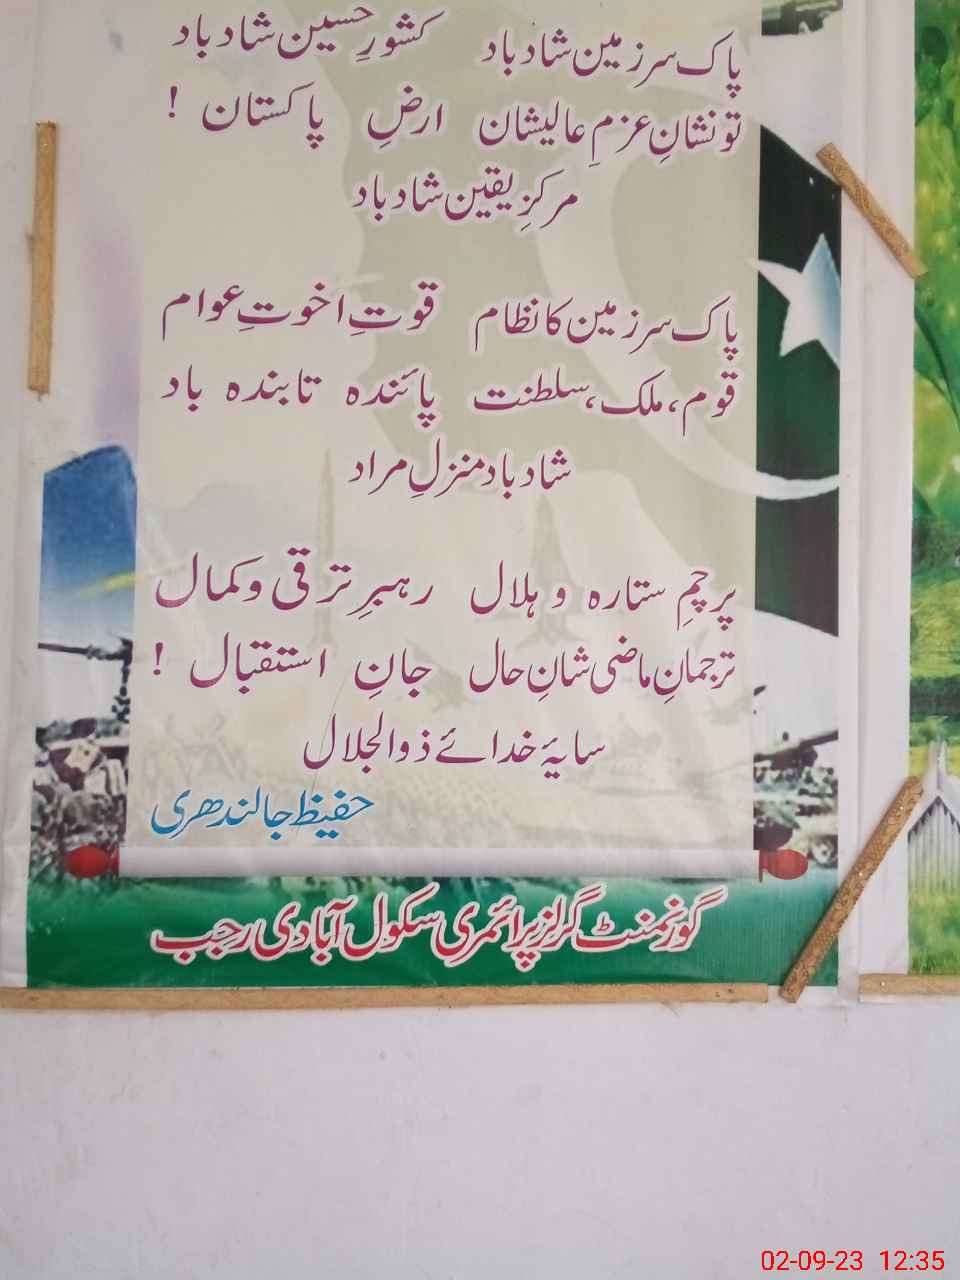 پاک سرزمین شاد باد کشورِ حسین شاد باد
تو نشانِ عزمِ عالیشان ارضِ پاکستان !
مرکزِ یقین شاد باد
پاک سرزمین کا نظام قوتِ اخوتِ عوام
قوم، ملک، سلطنت پائندہ تابندہ باد
شاد باد منزلِ مراد
پرچمِ ستارہ و ہلال رہبرِ ترقی و کمال
ترجمانِ ماضی شانِ حال جانِ استقبال !
سایۂ خدائے ذوالجلال
حفیظ جالندھری
گورنمنٹ گرلز پرائمری سکول آبادی رجب
02-09-23 12:35